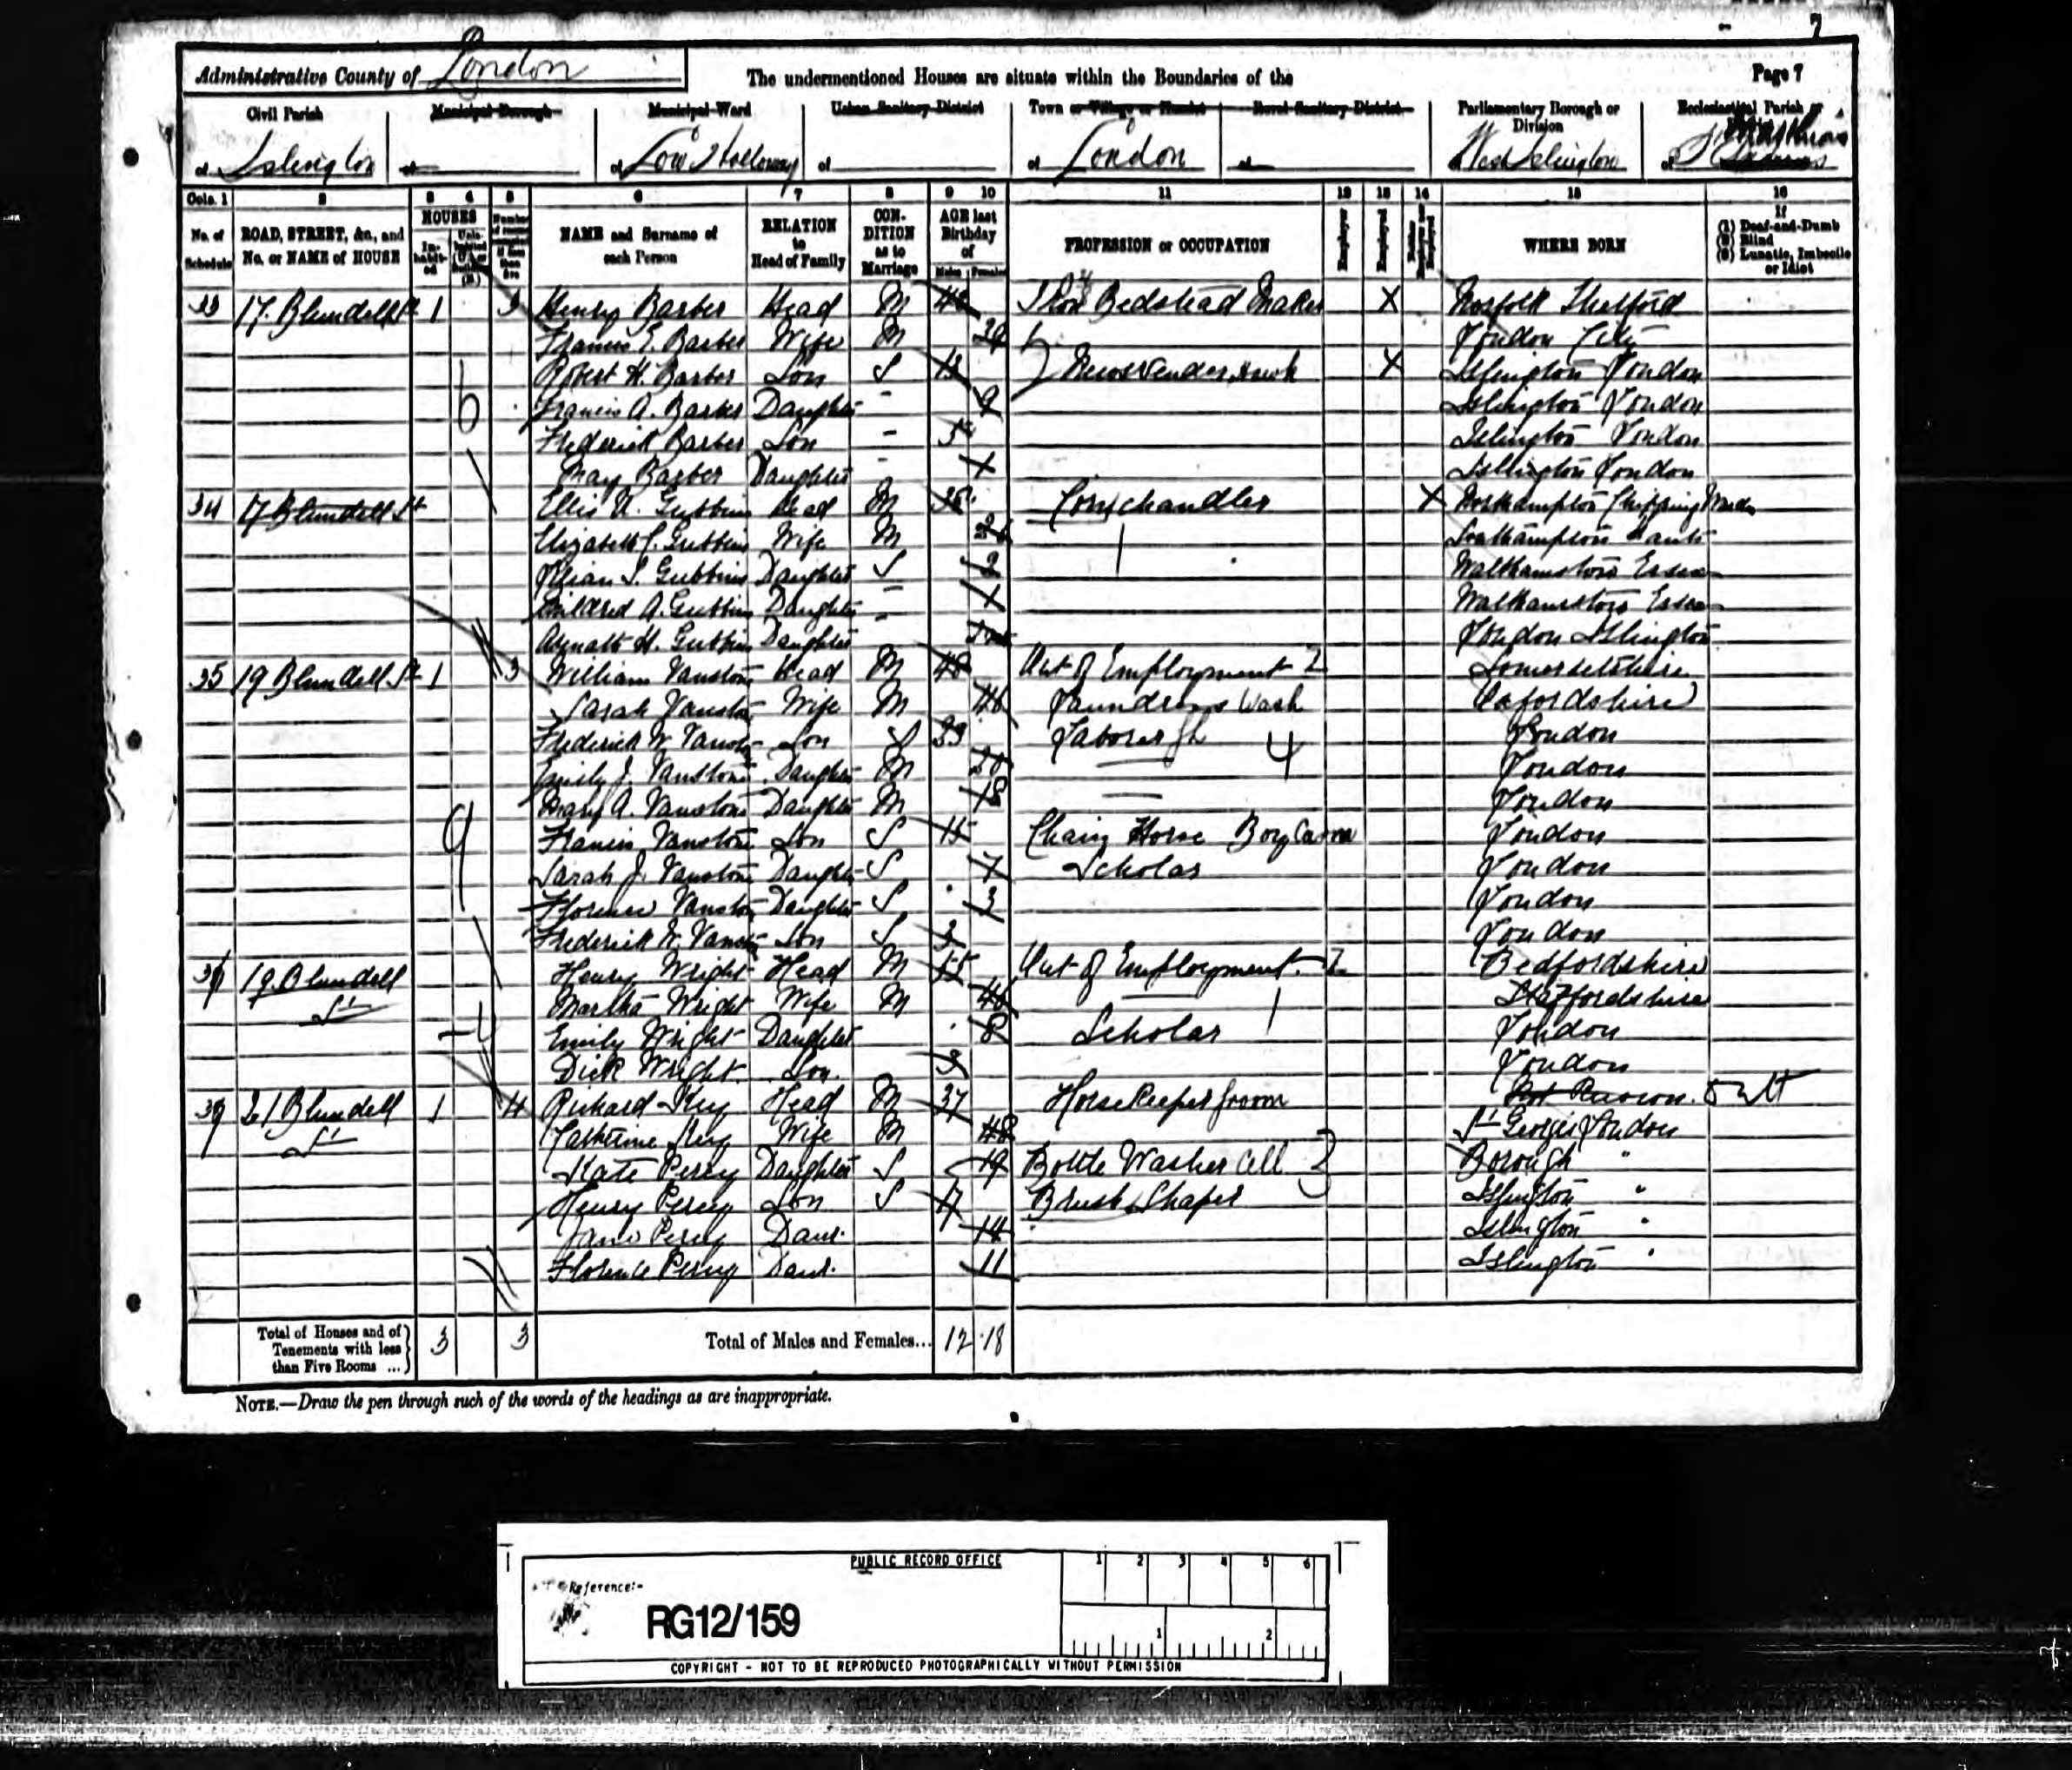 7
Administrative County of London The undermentioned Houses are situate within the Boundaries of the Page 7
Civil Parish Municipal Borough Municipal Ward Urban Sanitary District Town or Village or Hamlet Rural Sanitary District Parliamentary Borough or Division Ecclesiastical Parish or
of Islington of of Low Holloway of of London of West Islington of St Matthias
Cols. 1 2 3 4 5 6 7 8 9 10 11 12 13 14 15 16
No. of Schedule ROAD, STREET, &c., and No. or NAME of HOUSE HOUSES Inhabited NAME and Surname of each Person RELATION to Head of Family CONDITION as to Marriage AGE last Birthday of Males Females PROFESSION or OCCUPATION Employer Employed WHERE BORN If (1) Deaf-and-Dumb (2) Blind (3) Lunatic, Imbecile or Idiot
33 17. Blundell St 1 3 Henry Barber Head M Iron Bedstead Maker X Norfolk Thetford
Francis E. Barber Wife M London City
Robert H. Barber Son S 13 Newsvender X Islington London
Francis A. Barber Daughter 9 Islington London
Frederick Barber Son 5 Islington London
May Barber Daughter 1 Islington London
34 17 Blundell St Ellis A. Gubbins Head M Corn chandler X Northampton Chipping Warden
Elizabeth C. Gubbins Wife M Southampton Hants
Lilian S. Gubbins Daughter S 2 Walthamstow Essex
Mildred A. Gubbins Daughter 1 Walthamstow Essex
H. Gubbins Daughter London Islington
35 19 Blundell St 1 3 William Vanstone Head M 48 Out of Employment Somersetshire
Sarah Vanstone Wife M 46 Laundress Wash Oxfordshire
Frederick W. Vanstone Son S 23 Laborer London
Emily J. Vanstone Daughter M 20 London
Mary A. Vanstone Daughter M 18 London
Francis Vanstone Son S 15 Chain Horse Boy London
Sarah J. Vanstone Daughter S 7 Scholar London
Florence Vanstone Daughter S 3 London
Frederick W. Vanstone Son S London
36 19. Blundell St Henry Wright Head M 55 Out of Employment Bedfordshire
Martha Wright Wife M 46 Staffordshire
Emily Wright Daughter 8 Scholar London
Dick Wright Son 3 London
37 21 Blundell St 1 4 Richard Key Head M 37 Horse Keeper Groom Not Known
Catherine Key Wife M 48 St Georges London
Kate Percy Daughter S 19 Bottle Washer Borough "
Henry Percy Son S 17 Brush Shaper Islington "
Jane Percy Daur. 14 Islington "
Florence Percy Daur. 11 Islington "
Total of Houses and of Tenements with less than Five Rooms ... 3 3 Total of Males and Females... 12 18
NOTE.—Draw the pen through such of the words of the headings as are inappropriate.
PUBLIC RECORD OFFICE 1 2 3 4 5 6
Reference:-
RG12/159
1 2
COPYRIGHT - NOT TO BE REPRODUCED PHOTOGRAPHICALLY WITHOUT PERMISSION